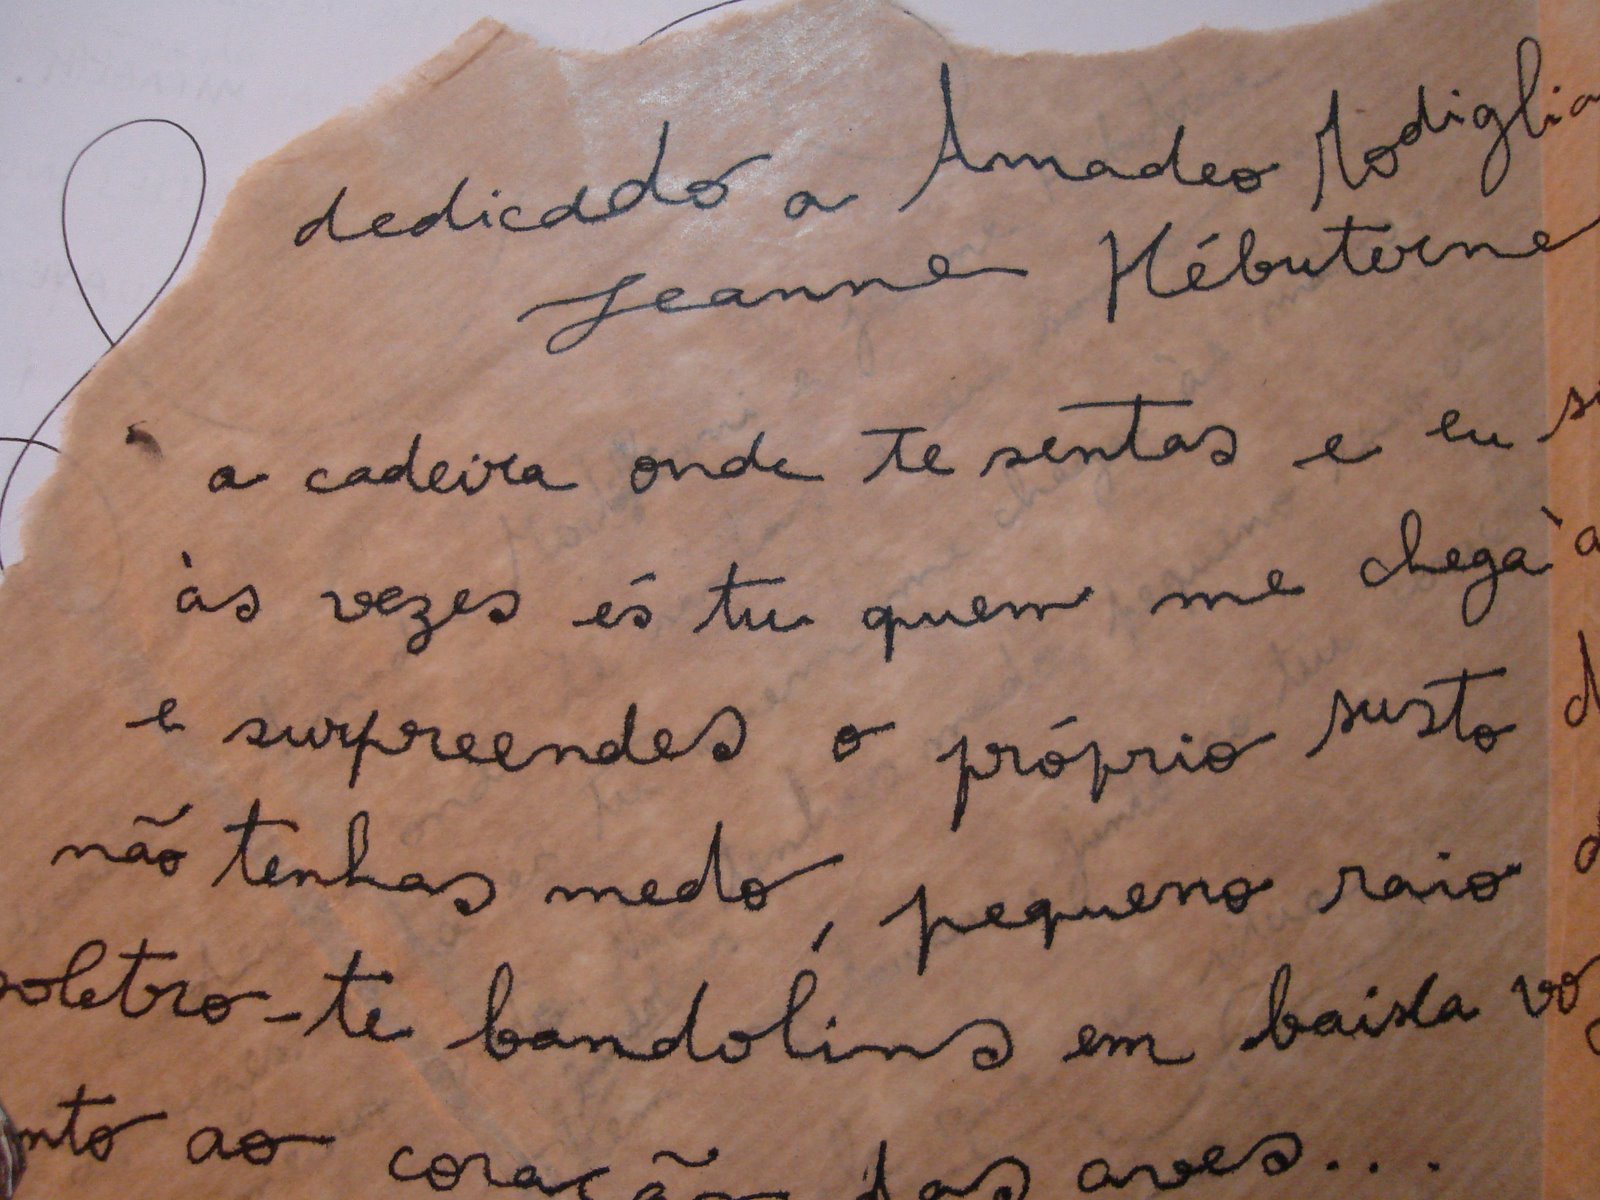 dedicado a Amadeo Modiglia
Jeanne Hébuterne
a cadeira onde te sentas e eu si
às vezes és tu quem me chega à
e surpreendes o próprio susto d
não tenhas medo, pequeno raio d
soletro-te bandolins em baixa vo
nto ao coração das aves...